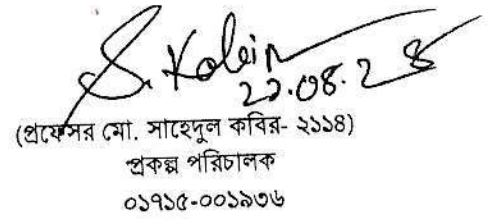 S. Kabir
(প্রফেসর মো. সাহেদুল কবির- ২১১৪)
প্রকল্প পরিচালক
০১৭১৫-০০১৯৩৬